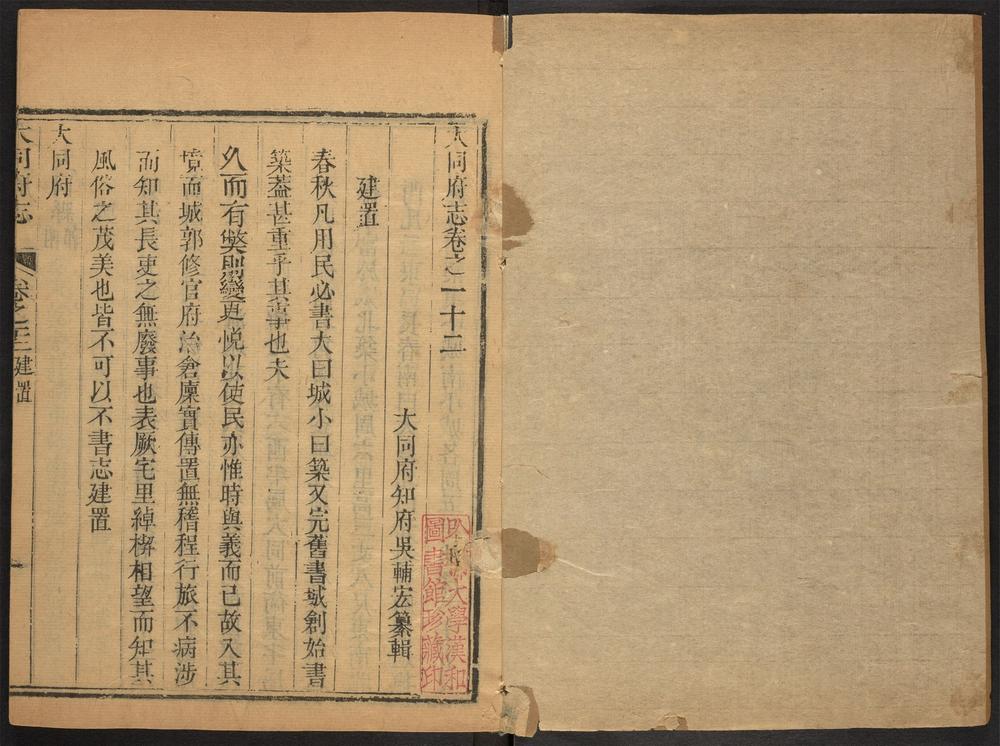 大同府志卷之一十二
大同府知府吳輔宏纂輯
建置
春秋凡用民必書大曰城小曰築又完舊書城創始書
築葢甚重乎其事也夫
久而有獘則變更悅以使民亦惟時與義而已故入其
境而城郭修官府治倉廩實傳置無稽程行旅不病涉
而知其長吏之無廢事也表厥宅里綽楔相望而知其
風俗之茂美也皆不可以不書志建置
大同府
大同府志
卷之
建置
大學漢和
圖書館珍藏印